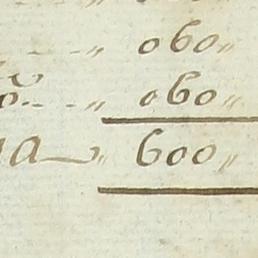 " 060 "
" 060 "
" 600 "